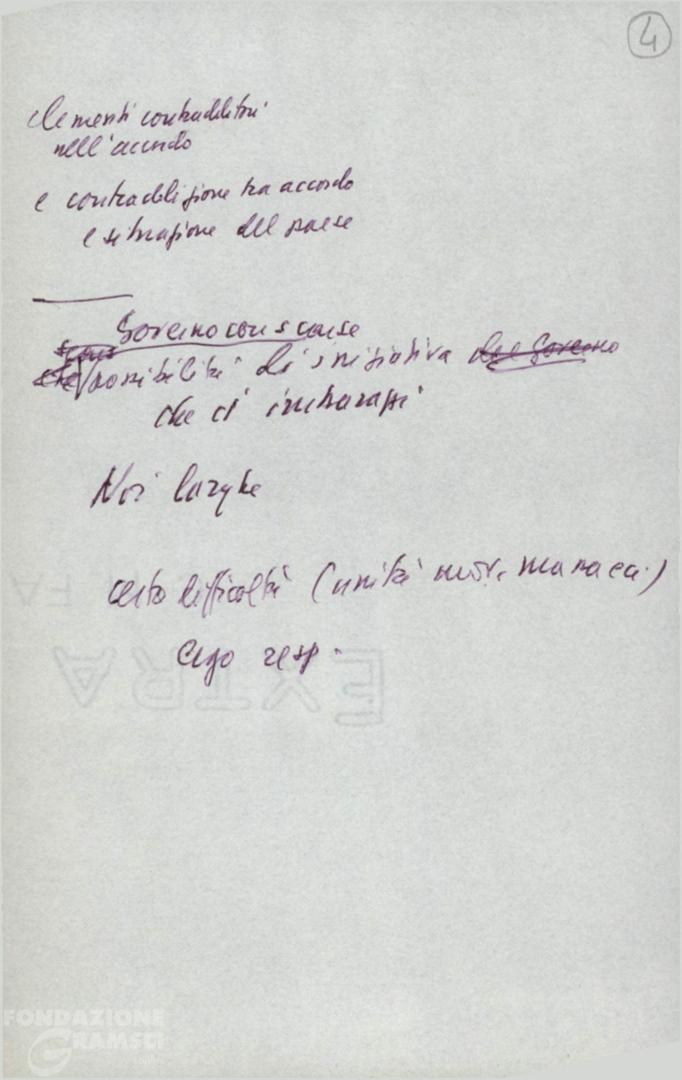 4
elementi contraddittori
nell'accordo
e contraddizione tra accordo
e situazione del paese
Governo con scarse
possibilità di iniziativa del Governo
che ci imbarazzi
Noi larghe
certo difficoltà (unità mov.
Ergo resp.
EXTRA
FONDAZIONE
GRAMSCI